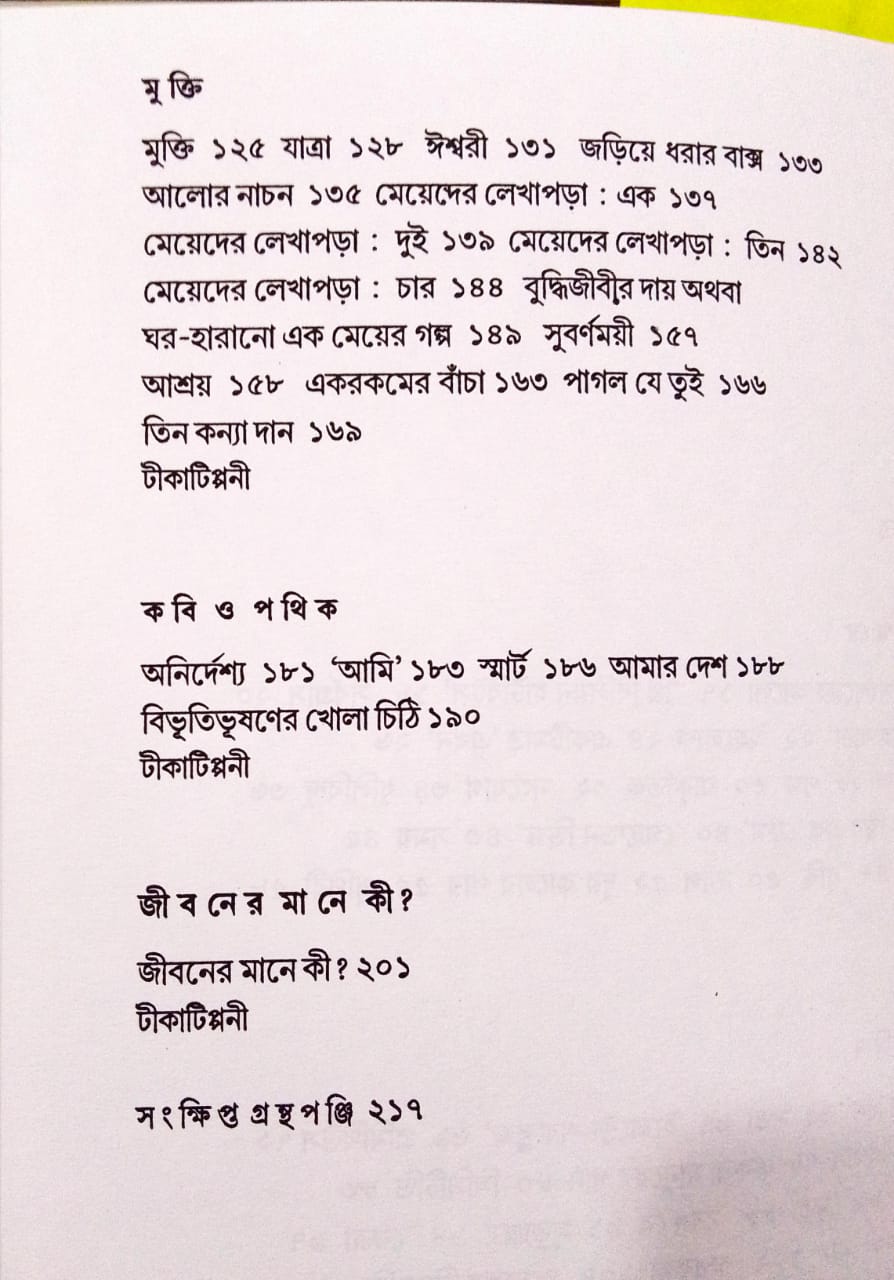 মুক্তি
মুক্তি ১২৫ যাত্রা ১২৮ ঈশ্বরী ১৩১ জড়িয়ে ধরার বাক্স ১৩৩
আলোর নাচন ১৩৫ মেয়েদের লেখাপড়া : এক ১৩৭
মেয়েদের লেখাপড়া : দুই ১৩৯ মেয়েদের লেখাপড়া : তিন ১৪২
মেয়েদের লেখাপড়া : চার ১৪৪ বুদ্ধিজীবীর দায় অথবা
ঘর-হারানো এক মেয়ের গল্প ১৪৯ সুবর্ণময়ী ১৫৭
আশ্রয় ১৫৮ একরকমের বাঁচা ১৬৩ পাগল যে তুই ১৬৬
তিন কন্যা দান ১৬৯
টীকাটিপ্পনী
কবি ও পথিক
অনির্দেশ্য ১৮১ ‘আমি’ ১৮৩ স্মার্ট ১৮৬ আমার দেশ ১৮৮
বিভূতিভূষণের খোলা চিঠি ১৯০
টীকাটিপ্পনী
জীবনের মানে কী?
জীবনের মানে কী? ২০১
টীকাটিপ্পনী
সংক্ষিপ্ত গ্রন্থপঞ্জি ২১৭